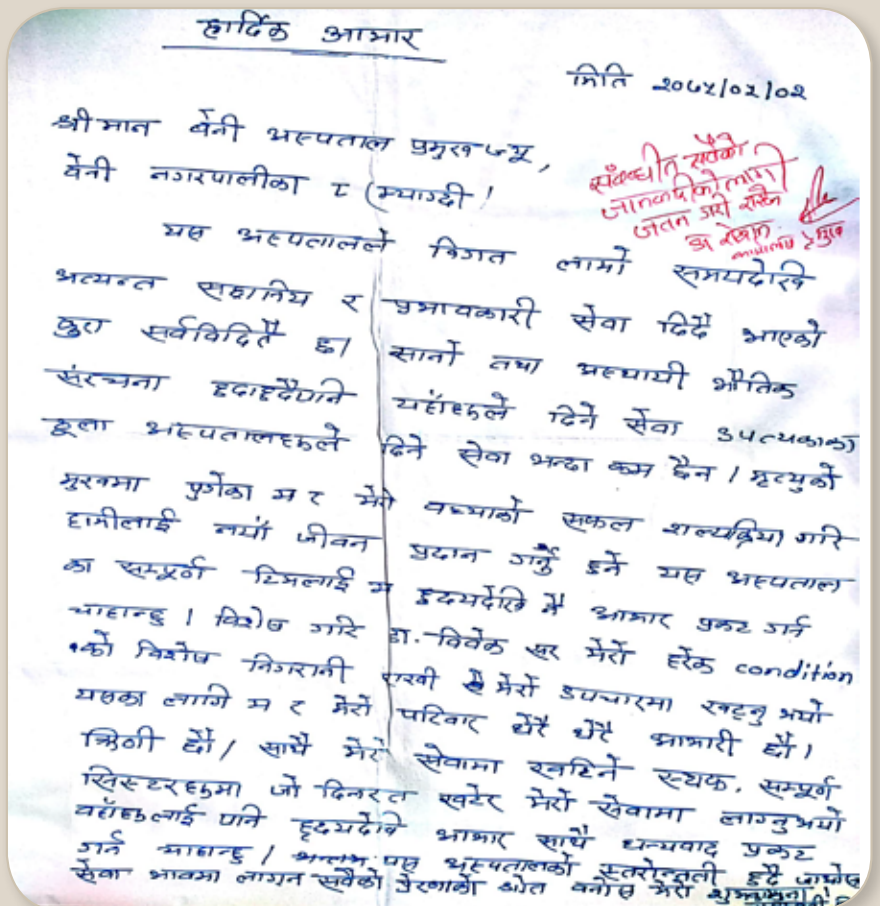 हार्दिक आभार
मिति २०७५/०२/०२
श्रीमान बेनी अस्पताल प्रमुखज्यू,
बेनी नगरपालीका ८ (म्याग्दी !
संबन्धीत सबैको
जानकारीको लागी
जतन गरी राख्ने
यस अस्पतालले विगत लामो समयदेखि
अत्यन्त सह्रानिय र प्रभावकारी सेवा दिदै आएको
कुरा सर्वविदितै छ। सानो तथा अस्थायी भौतिक
संरचना हुदाहुदैपनि यहाँहरुले दिने सेवा उपत्यकाका
ठूला अस्पतालहरुले दिने सेवा भन्दा कम छैन । मृत्युको
मुखमा पुगेका म र मेरो बच्चाको सफल शल्यक्रिया गरि
हामीलाई नयाँ जीवन प्रदान गर्नु हुने यस अस्पताल
का सम्पूर्ण टिमलाई म हृदयदेखि नै आभार प्रकट गर्न
चाहान्छु । विशेष गरि डा. विवेक सर मेरो हरेक condition
को विशेष निगरानी राखी मेरो उपचारमा खट्नु भयो
यसका लागि म र मेरो परिवार धेरै धेरै आभारी छौं।
ऋिणी छौं। साथै मेरो सेवामा खटिने स्टाफ, सम्पूर्ण
सिस्टरहरुमा जो दिनरात खटेर मेरो सेवामा लाग्नुभयो
वहाँहरुलाई पनि हृदयदेखि आभार साथै धन्यवाद प्रकट
गर्न चाहान्छु । यस अस्पतालको स्तरोन्नती हुदै जाओस
सेवा भावमा लाग्न सबैको प्रेरणाको श्रोत बनोस मेरो शुभकामना !